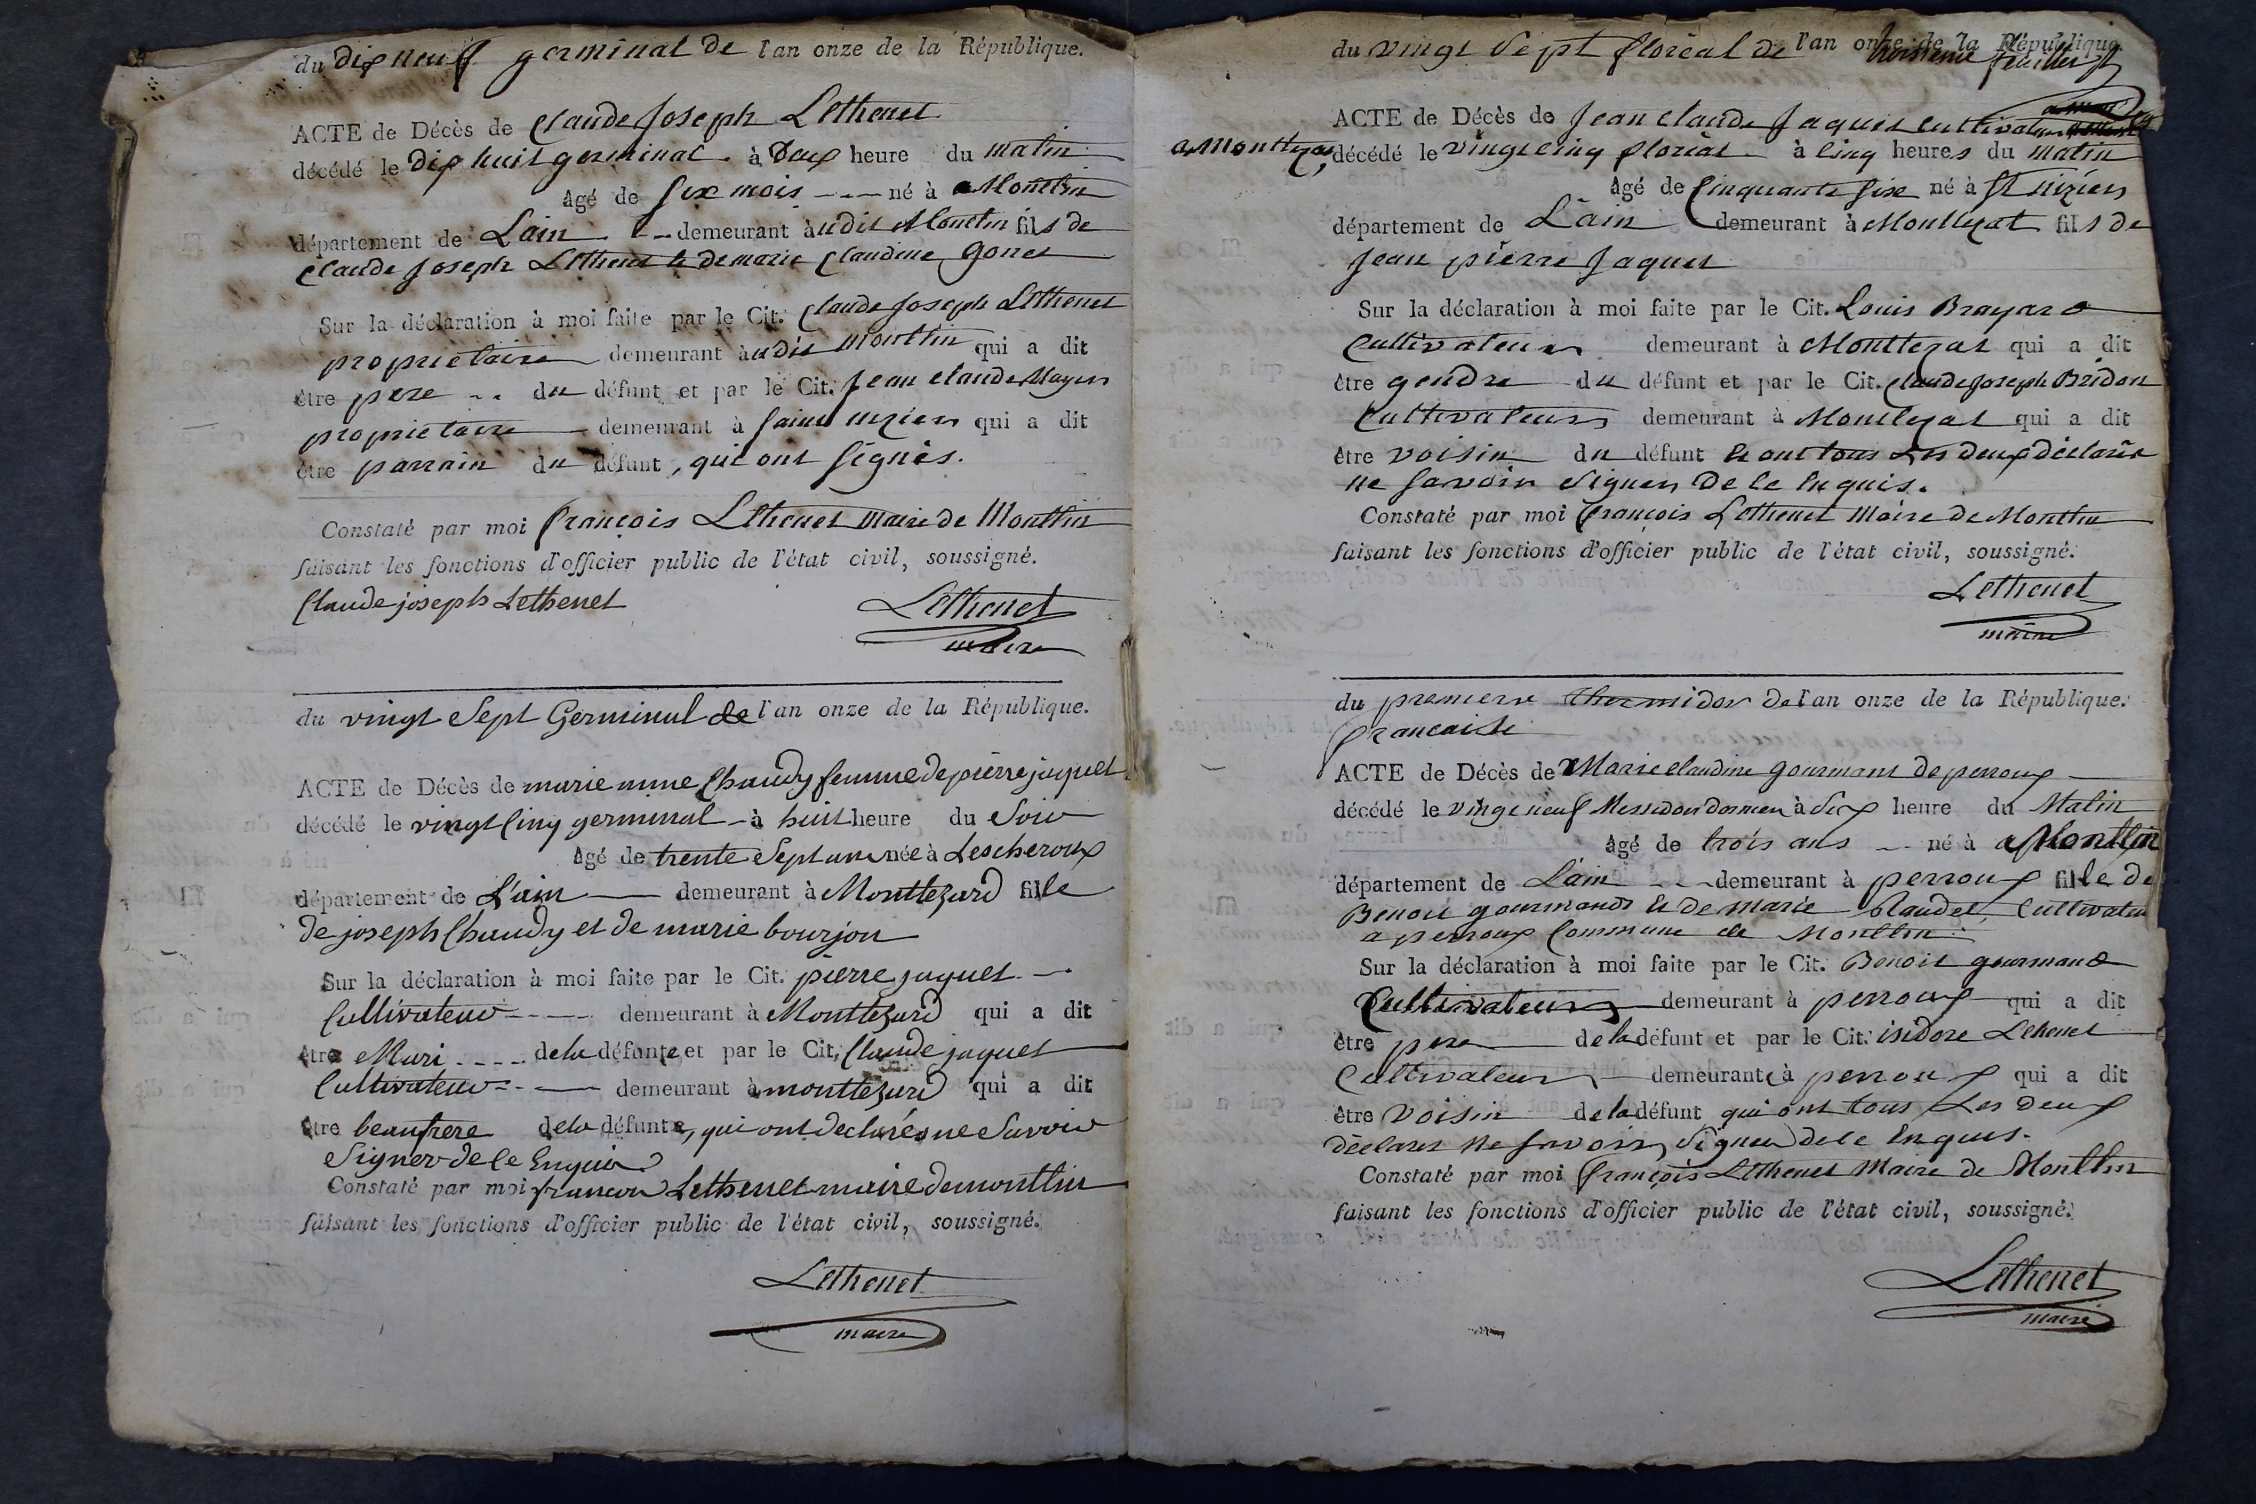 du dix neuf germinal de l'an onze de la République.
ACTE de Décès de Claude Joseph Lethenet
décédé le dix huit germinal à deux heure du matin
âgé de six mois né à Montlin
département de Lain demeurant audit Montlin fils de
Claude Joseph Lethenet et de marie Claudine gonet
Sur la déclaration à moi faite par le Cit. Claude Joseph Lethenet
propriétaire demeurant audit montlin qui a dit
être pere du défunt et par le Cit. Jean claude
propriétaire demeurant à saint nizier qui a dit
être parrain du défunt, qui ont signés.
Constaté par moi françois Lethenet maire de Montlin
faisant les fonctions d'officier public de l'état civil, soussigné.
Claude joseph Lethenet Lethenet
maire
du vingt Sept Germinal de l'an onze de la République.
ACTE de Décès de marie anne Chaudy femme de pierre jaquet
décédé le vingt Cinq germinal à huit heure du Soir
âgé de trente Sept ans née à Lescheroux
département de L'ain demeurant à Montlezard fille
de joseph Chaudy et de marie bourjon
Sur la déclaration à moi faite par le Cit. pierre jaquet
Cultivateur demeurant à Montlezard qui a dit
être Mari dela défunte et par le Cit. Claude jaquet
Cultivateur demeurant à montlezard qui a dit
être beaufrere dela défunte, qui ont declarés ne Savoir
Signer de ce Enquis
Constaté par moi françois Lethenet maire de montlin
faisant les fonctions d'officier public de l'état civil, soussigné.
Lethenet
maire
du vingt Sept floréal de l'an onze de la République
troisieme feuillet
ACTE de Décès de Jean claude Jaquet cultivateur
a Montlezat décédé le vingt cinq floréal à cinq heures du matin
âgé de cinquante six né à St nizier
département de L'ain demeurant à Montlezat fils de
Jean pierre Jaquet
Sur la déclaration à moi faite par le Cit. Louis Brayard
Cultivateur demeurant à Montlezat qui a dit
être gendre du défunt et par le Cit. Claude Joseph Bridon
Cultivateur demeurant à Montlezat qui a dit
être voisin du défunt et ont tous les deux déclaré
ne savoir signer de ce enquis.
Constaté par moi françois Lethenet Maire de Montlin
faisant les fonctions d'officier public de l'état civil, soussigné.
Lethenet
maire
du premier thermidor de l'an onze de la République.
francaise
ACTE de Décès de Marie claudine gourmant de perroux
décédé le vingt neuf Messidor dernier à six heure du Matin
âgé de trois ans né à Montlin
département de L'ain demeurant à perroux fille de
Benoit gourmand et de marie Claudet, Cultivateur
a perroux Commune de Montlin
Sur la déclaration à moi faite par le Cit. Benoit gourmand
Cultivateur demeurant à perroux qui a dit
être pere de la défunt et par le Cit. isidore Lethenet
Cultivateur demeurant à perroux qui a dit
être voisin de la défunt qui ont tous les deux
déclarer ne savoir signer de ce Enquis.
Constaté par moi françois Lethenet Maire de Montlin
faisant les fonctions d'officier public de l'état civil, soussigné.
Lethenet
maire